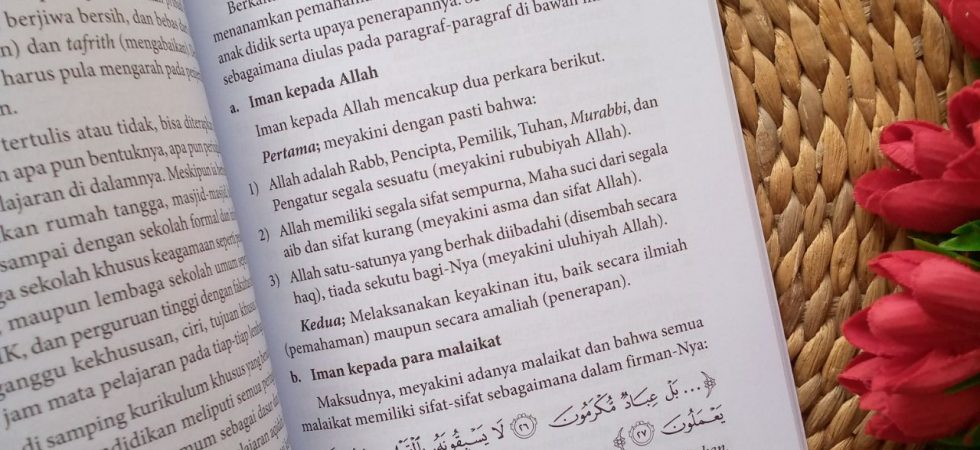 berjiwa bersih, dan bebas da
n) dan tafrith (mengabaikan).
harus pula mengarah pada
n.
tertulis atau tidak, bisa
n apa pun bentuknya, apa pun
lajaran di dalamnya. Meskipun
kan rumah tangga, masjid-masjid
sampai dengan sekolah formal dan
ga sekolah khusus keagamaan seperti
, maupun lembaga sekolah umum
IK, dan perguruan tinggi dengan
nggu kekhususan, ciri, tujuan
jam mata pelajaran pada tiap-tiap
di samping kurikulum khusus yang
didikan meliputi semua
mum sebagai dasar
Berkan
menanamkan pemaham
anak didik serta upaya penerapannya.
sebagaimana diulas pada paragraf-paragraf di bawah
a. Iman kepada Allah
Iman kepada Allah mencakup dua perkara berikut.
Pertama; meyakini dengan pasti bahwa:
1) Allah adalah Rabb, Pencipta, Pemilik, Tuhan, Murabbi, dan
Pengatur segala sesuatu (meyakini rububiyah Allah).
2) Allah memiliki segala sifat sempurna, Maha suci dari segala
aib dan sifat kurang (meyakini asma dan sifat Allah).
3) Allah satu-satunya yang berhak diibadahi (disembah secara
haq), tiada sekutu bagi-Nya (meyakini uluhiyah Allah).
Kedua; Melaksanakan keyakinan itu, baik secara ilmiah
(pemahaman) maupun secara amaliah (penerapan).
b. Iman kepada para malaikat
Maksudnya, meyakini adanya malaikat dan bahwa semua
malaikat memiliki sifat-sifat sebagaimana dalam firman-Nya:
﴿... بَلْ عِبَادٌ مُّكْرَمُونَ ۝٢٦ لَا يَسْبِقُونَهُ
يَعْمَلُونَ ۝٢٧﴾